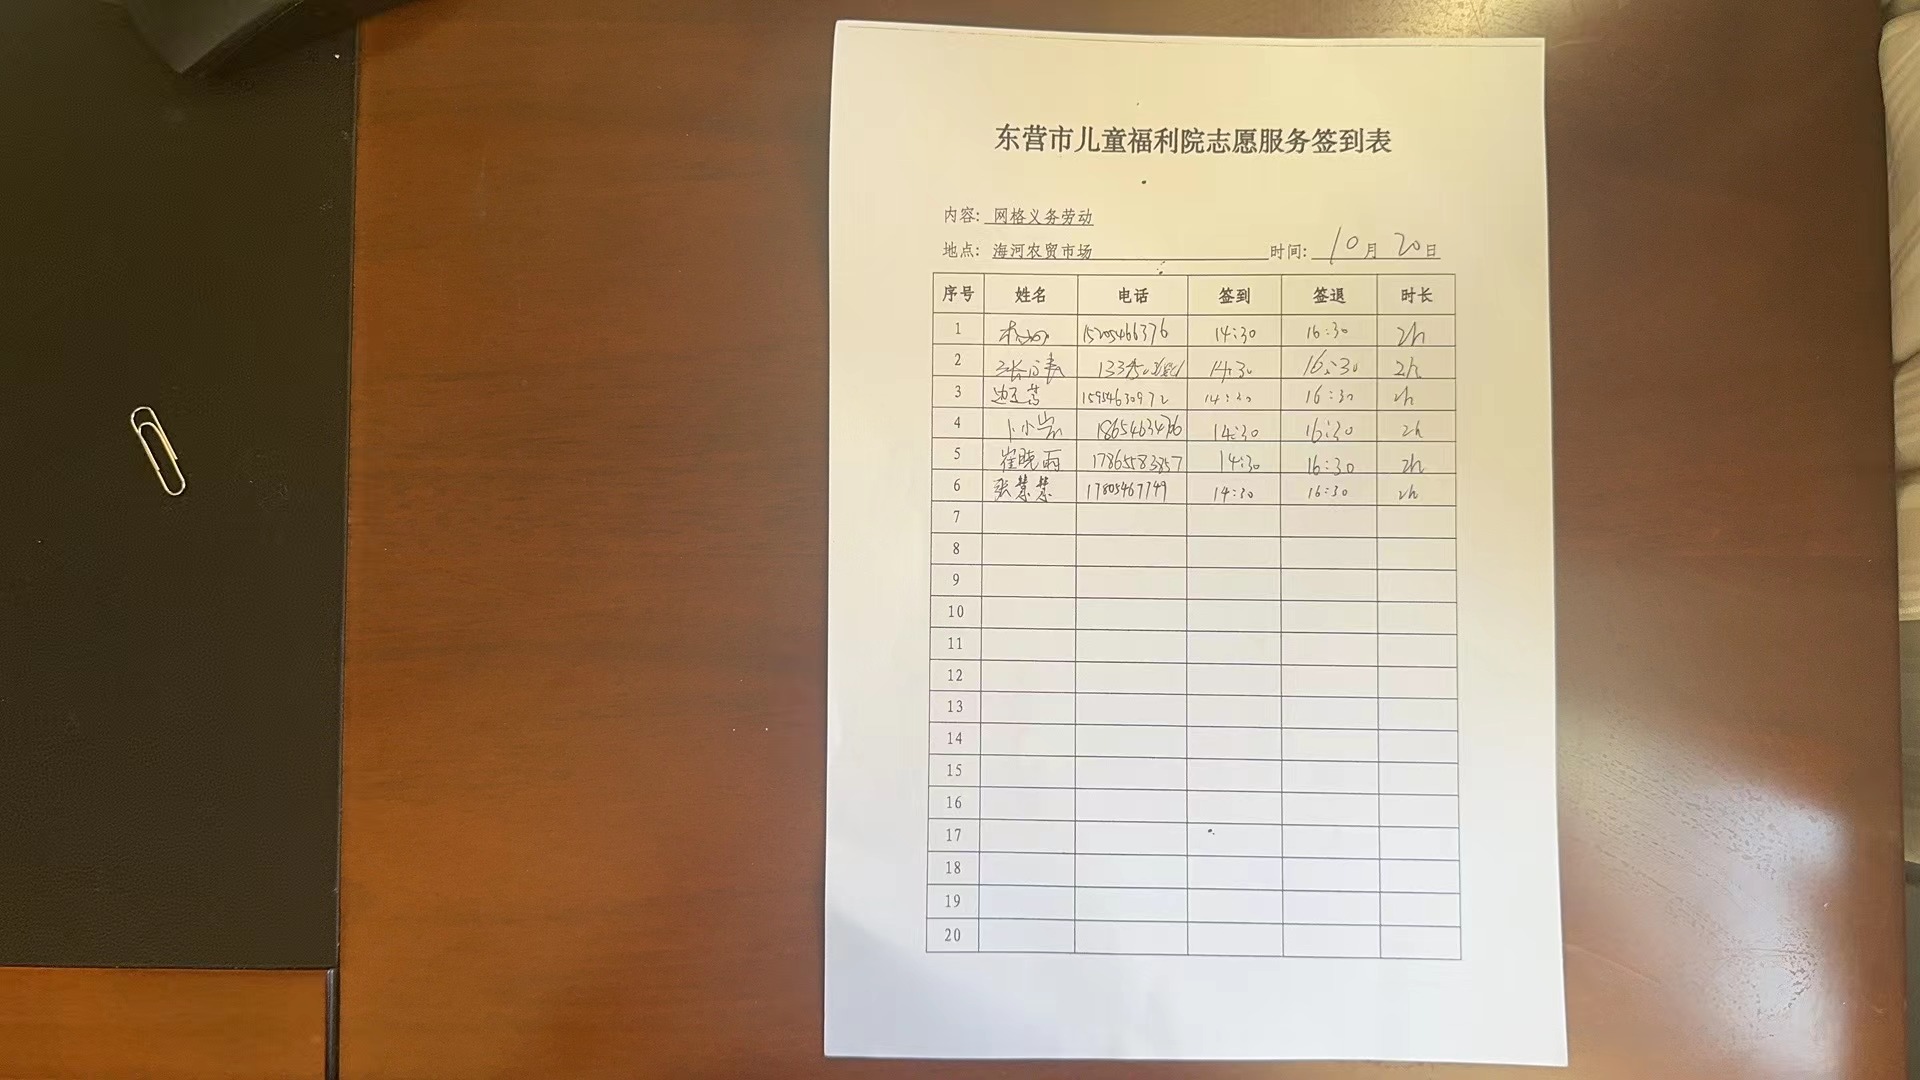 东营市儿童福利院志愿服务签到表
内容: 网格义务劳动
地点: 海河农贸市场 时间: 10月20日
序号 姓名 电话 签到 签退 时长
1 15205466376 14:30 16:30 2h
2 14:30 16:30 2h
3 15954630972 14:30 16:30 2h
4 卜小岩 14:30 16:30 2h
5 崔晓雨 17865583857 14:30 16:30 2h
6 张慧慧 17805467749 14:30 16:30 2h
7
8
9
10
11
12
13
14
15
16
17
18
19
20